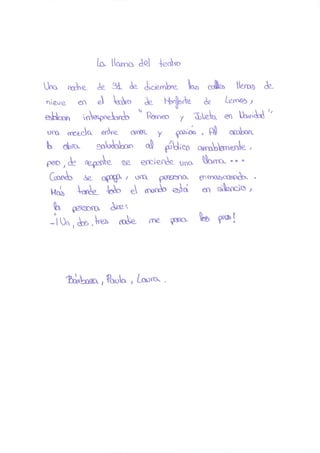 La llama del teatro
Una noche de 31 de diciembre las calles llenas de
nieve en el teatro de Monforte de Lemos,
estaban interpretando "Romeo y Julieta en Navidad",
una mezcla entre amor y pasión. Al acabar
la obra saludaban al público amablemente,
pero, de repente se enciende una llama...
Cuando se apaga, una persona enmascarada.
Más tarde todo el mundo está en silencio,
la persona dice:
-¡Un, dos, tres nadie me para los pies!
Bárbara, Paula, Laura.